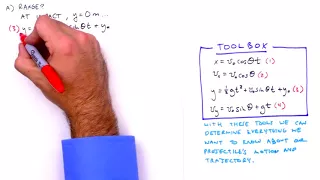 A) RANGE?
AT IMPACT, y=0m...
(3) y= sinθt+y₀
TOOLBOX
x = v₀cosθt (1)
vₓ = v₀cosθ (2)
y = ½gt²+v₀sinθt+y₀ (3)
vᵧ = v₀sinθ+gt (4)
WITH THESE TOOLS WE CAN
DETERMINE EVERYTHING WE
WANT TO KNOW ABOUT OUR
PROJECTILE'S MOTION AND
TRAJECTORY.